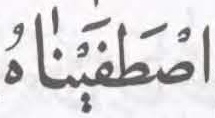 اصْطَفَيْنٰاهُ